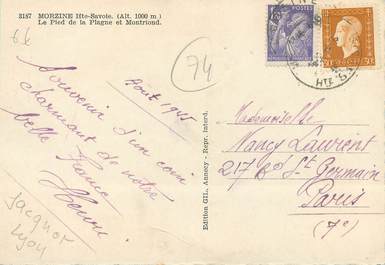 3187 MORZINE Hte-Savoie. (Alt. 1000 m)
Le Pied de la Plagne et Montriond.
74
Août 1945
Souvenir d'un coin
charmant de notre
belle France
Henri
Jacquot
Lyon
Edition GIL, Annecy - Repr. Interd.
Mademoiselle
Nancy Laurent
217 Bd St Germain
Paris
(7e)
HTE S